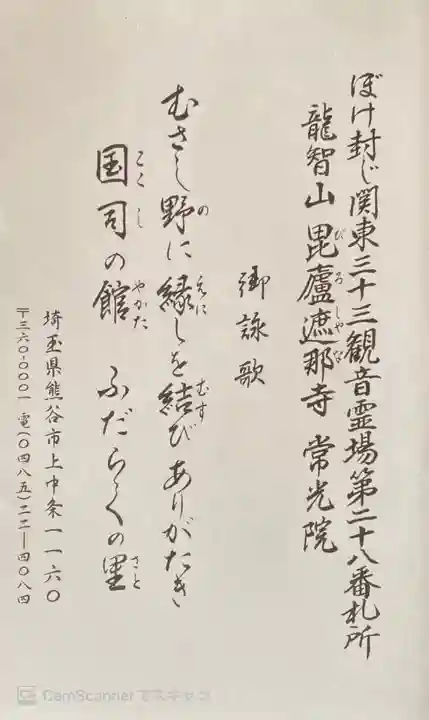 ぼけ封じ関東三十三観音霊場第二十八番札所
龍智山 毘盧遮那寺 常光院
びろしやな
御詠歌
むさし野に 縁しを結び ありがたき
の えに むす
国司の館 ふだらくの里
こくし やかた さと
埼玉県熊谷市上中条一一六〇
〒三六〇-〇〇〇一 電(〇四八五)二二-四〇八四
CamScanner でスキャン